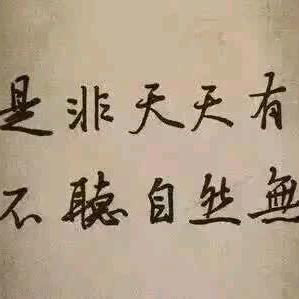 是非天天有
不聽自然無